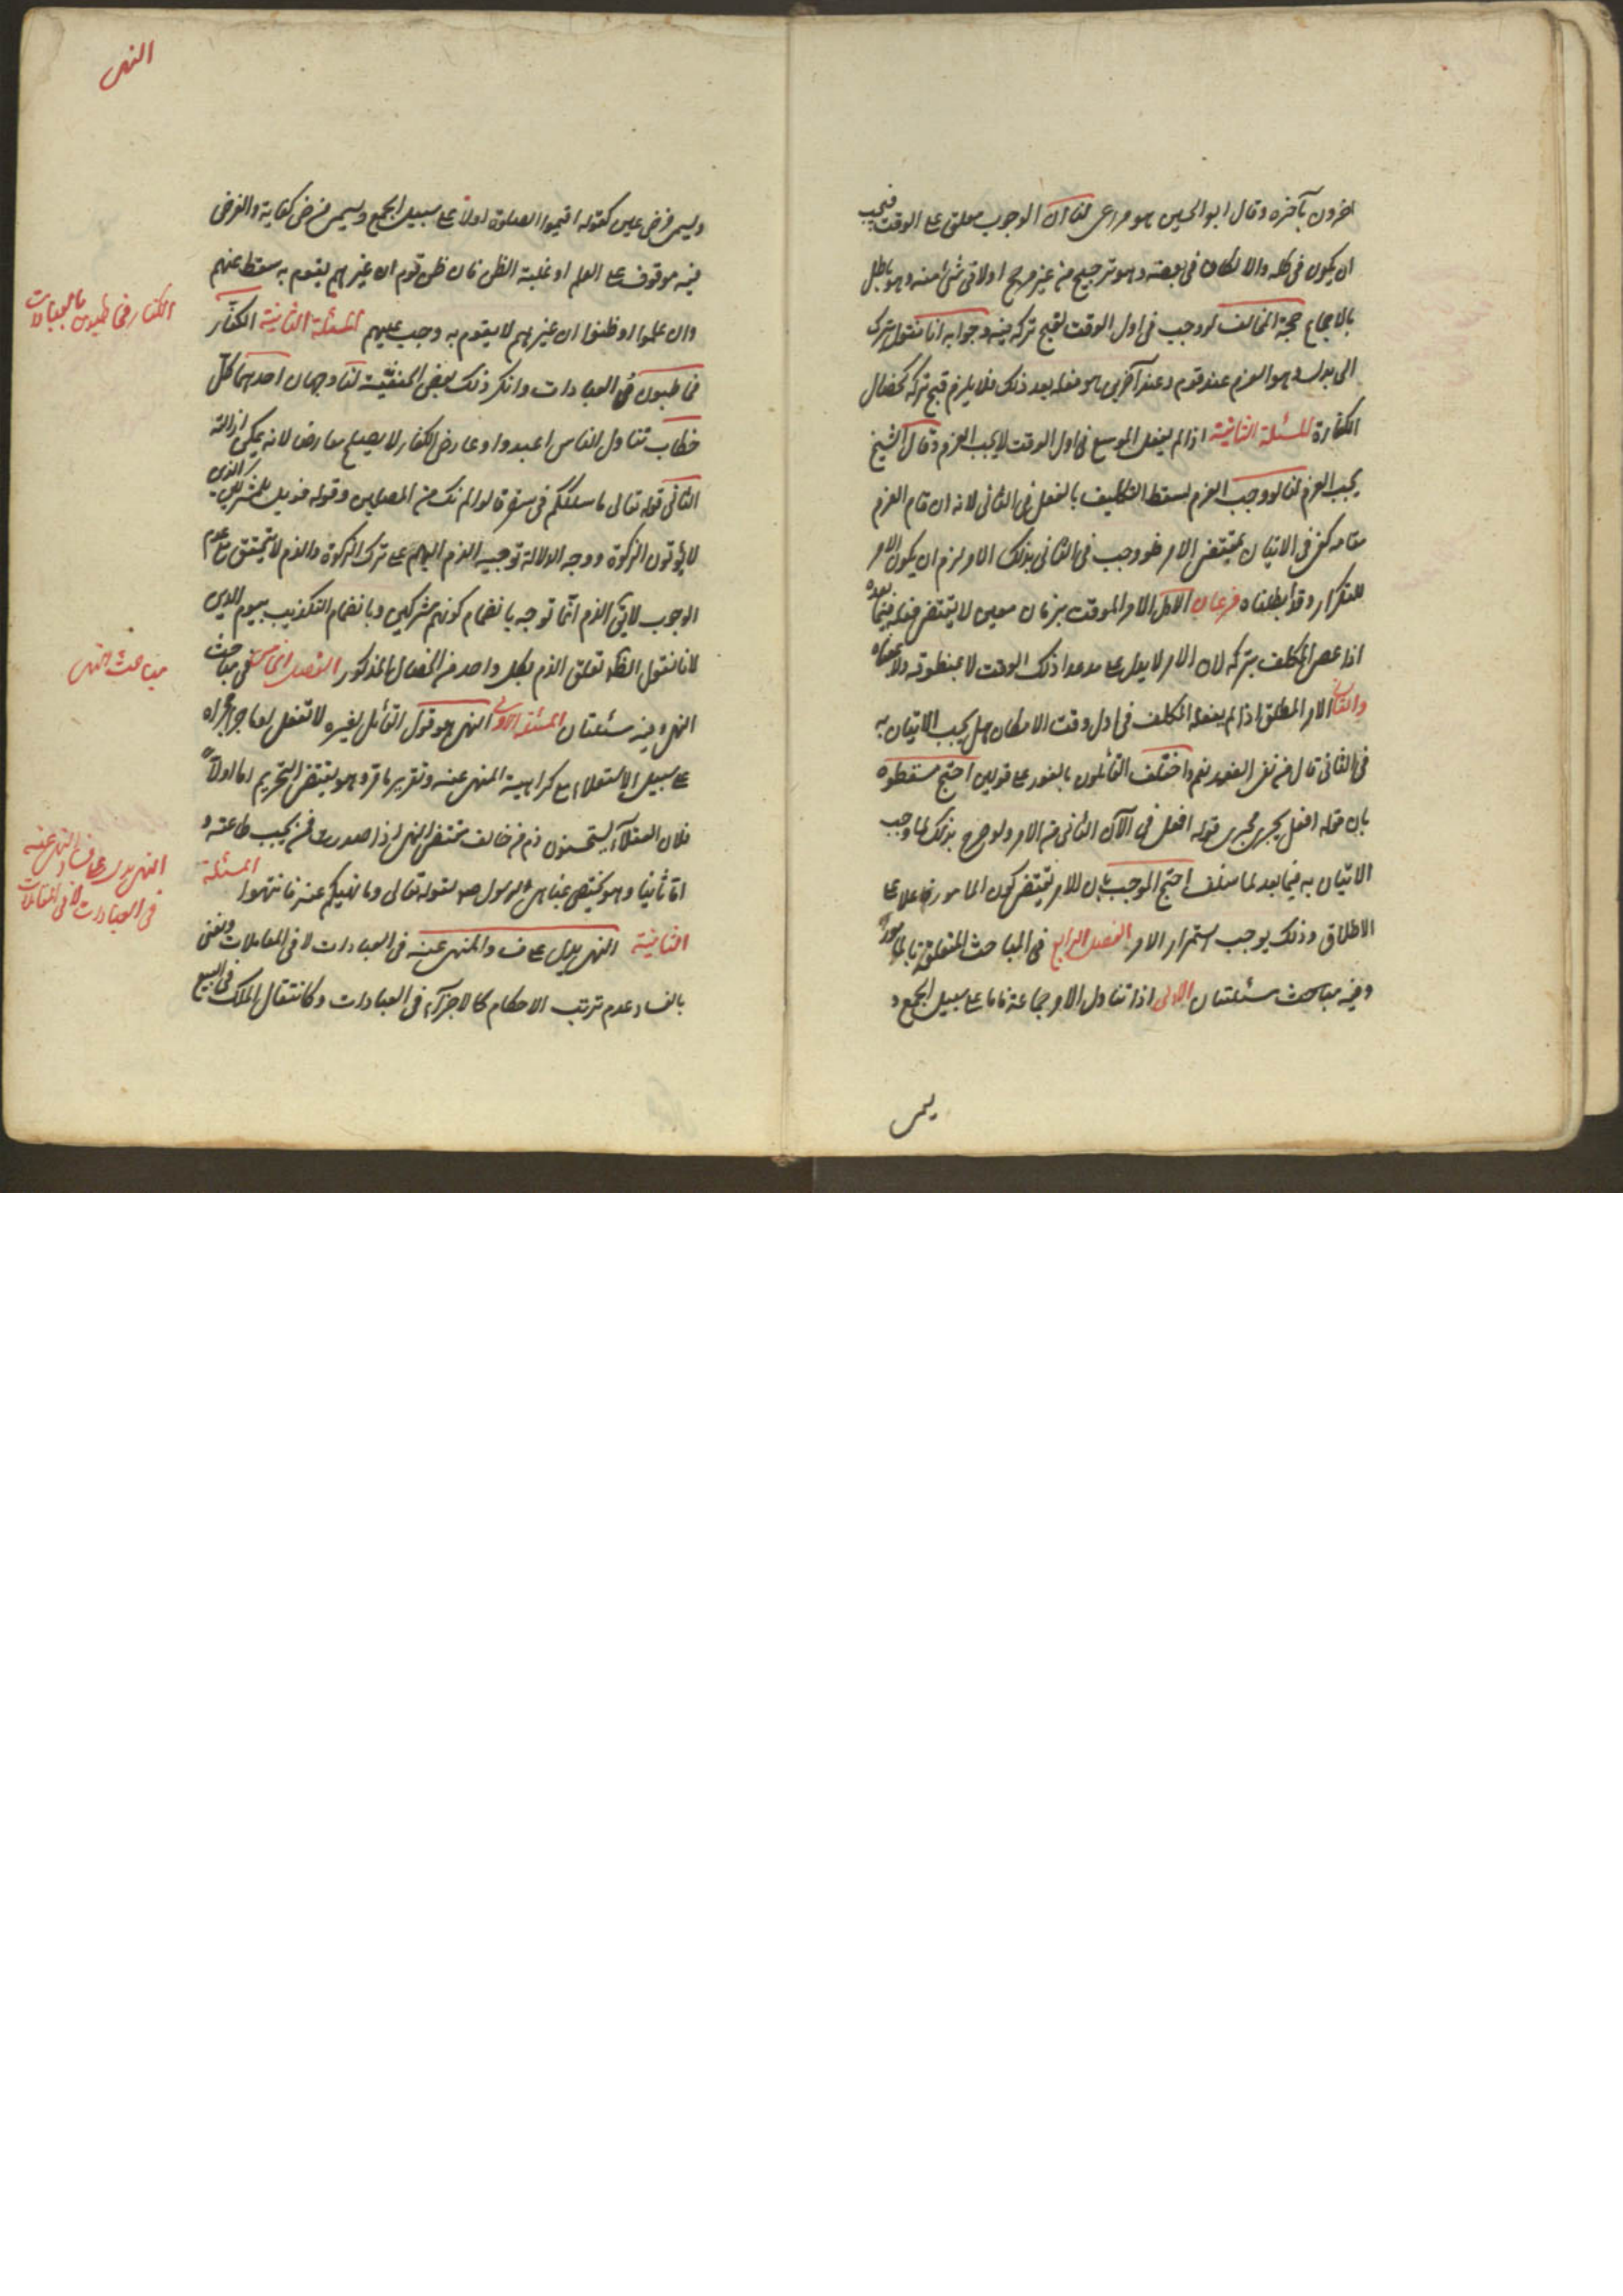 اخرون بآخره وقال ابو الحسين هو مراعى لنا ان الوجوب معلق على الوقت فيجب
ان يكون فى كله والا لكان فى بعضه وهو ترجيح من غير مرجح او لا فى شئ منه وهو باطل
بالاجماع حجة المخالف لو وجب فى اول الوقت لقبح تركه فيه وجوابه انا نقول ترك
الى بدل وهو العزم عند قوم وعند آخرين هو فعله بعد ذلك فلا يلزم قبح تركه كخصال
الكفارة المسئلة الثانية اذا لم يفعل الموسع فى اول الوقت لا يجب العزم وقال الشيخ
يجب العزم لنا لو وجب العزم لسقط التكليف بالفعل فى الثانى لانه ان قام العزم
مقامه كفى فى الاتيان بمقتضى الامر فلو وجب فى الثانى بذلك الامر لزم ان يكون الامر
للتكرار وقد ابطلناه فرعان الاول الامر الموقت بزمان معين لا يقتضى فعله فيما بعده
اذا عصى المكلف بتركه لان الامر لا يدل على ما عدا ذلك الوقت لا بمنطوقه ولا بمعناه
والثانى الامر المطلق اذا لم يفعله المكلف فى اول وقت الامكان هل يجب الاتيان به
فى الثانى قال من نفى الفور نعم واختلف القائلون بالفور على قولين احتج مسقطوه
بان قوله افعل يجرى مجرى قوله افعل فى الآن الثانى من الامر ولو صرح بذلك لما وجب
الاتيان به فيما بعد لما سلف احتج الموجب بان الامر يقتضى كون المأمور فاعلا على
الاطلاق وذلك يوجب استمرار الامر الفصل الرابع فى المباحث المتعلقة بالمأمور
وفيه مباحث مسئلتان الاولى اذا تناول الامر جماعة فاما على سبيل الجمع و
ليس
النهى
وليس فرض عين كقوله اقيموا الصلوة اولا على سبيل الجمع وليس فرض كفاية والفرض
فيه موقوف على العلم او غلبة الظن فان ظن قوم ان غيرهم يقوم به سقط عنهم
وان علموا او ظنوا ان غيرهم لا يقوم به وجب عليهم المسئلة الثانية الكفار
مخاطبون فى العبادات وانكر ذلك بعض الحنفية لنا وجهان احدهما كل
خطاب تناول الناس اعبدوا وعارض الكفار لا يصلح معارضا لانه يمكن ازالته
الثانى قوله تعالى ما سلككم فى سقر قالوا لم نك من المصلين وقوله فويل للمشركين الذين
لا يؤتون الزكوة ووجه الدلالة توجيه الذم اليهم على ترك الزكوة والذم لا يتحقق مع عدم
الوجوب لا يق الذم انما توجه بانضمام كونهم مشركين وبانضمام التكذيب بيوم الدين
لانا نقول الظ تعلق الذم بكل واحد من الخصال المذكور الفصل الخامس فى مباحث
النهى وفيه مسئلتان المسئلة الاولى النهى هو قول القائل لغيره لا تفعل او ما جرى مجراه
على سبيل الاستعلاء مع كراهية المنهى عنه وتقريره ما مر وهو يقتضى التحريم اما اولا
فلان العقلاء يستحسنون ذم من خالف مقتضى النهى اذا صدر من يجب طاعته و
اما ثانيا وهو يختص بمناهى الرسول ص لقوله تعالى وما نهيكم عنه فانتهوا المسئلة
الثانية النهى يدل على ف والمنهى عنه فى العبادات لا فى المعاملات ونعنى
بالفساد عدم ترتب الاحكام كالاجزآء فى العبادات وكانتقال الملك فى البيع
الكفار مخاطبون بالعبادات
مباحث النهى
النهى يدل على فساد المنهى عنه
فى العبادات لا فى المعاملات